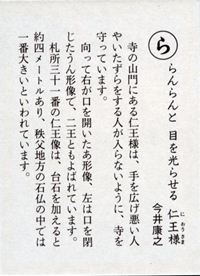 ら
らんらんと 目を光らせる 仁王様
におうさま
今井康之
寺の山門にある仁王様は、手を広げ悪い人
やいたずらをする人が入らないように、寺を
守っています。
向って右が口を開いたあ形像、左は口を閉
じたうん形像で、二王ともよばれています。
札所三十一番の仁王像は、台石を加えると
約四メートルあり、秩父地方の石仏の中では
一番大きいといわれています。